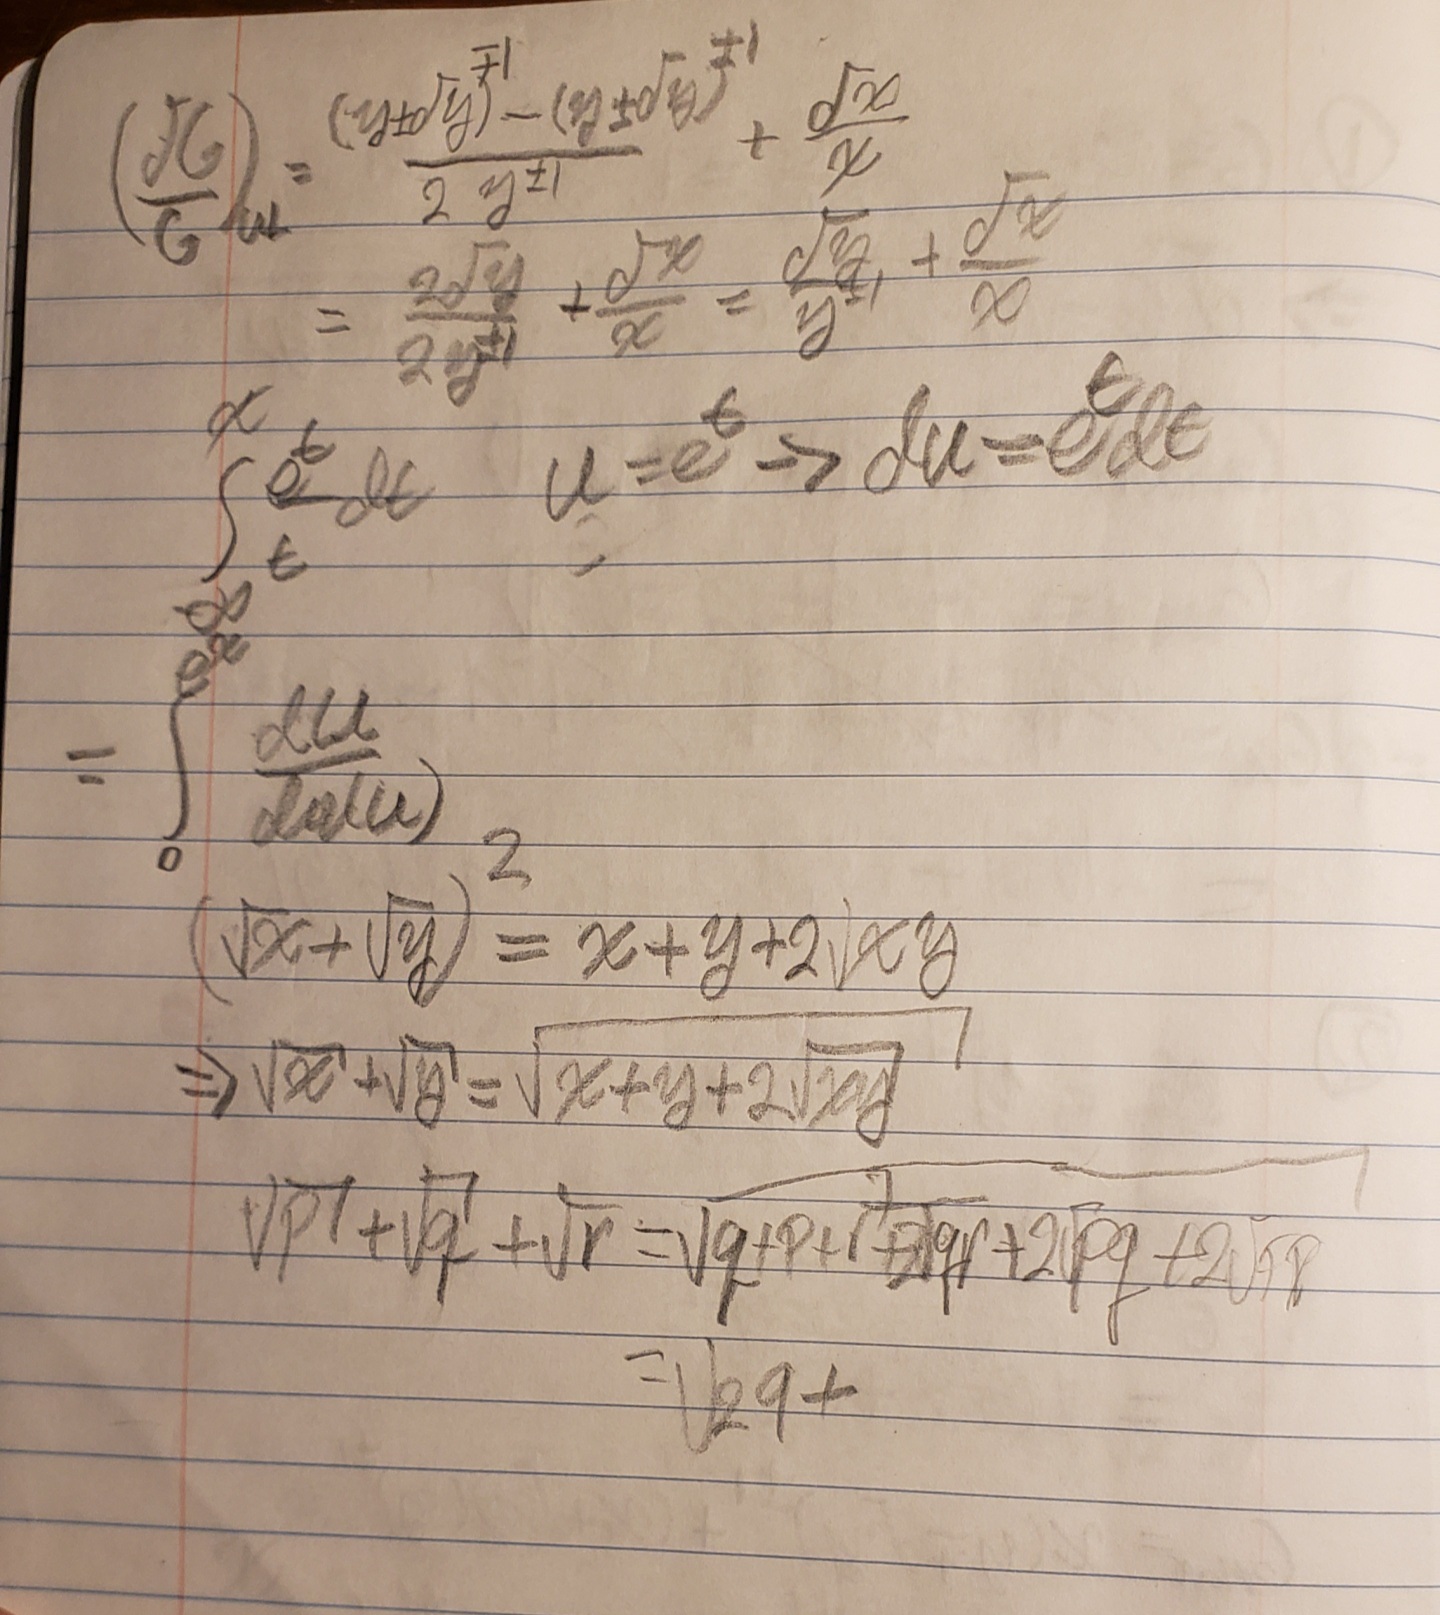 (δG/G)_w = ((y±δy)^∓1 − (y±δy)^±1)/(2 y^±1) + δx/x
= 2δy/(2y^±1) + δx/x = δy/y^±1 + δx/x
∫_∞^x e^t/t dt u = e^t → du = e^t dt
= ∫_0^{e^x} du/ln(u)
(√x + √y)^2 = x + y + 2√xy
⇒ √x + √y = √(x + y + 2√xy)
√p + √q + √r = √(q + p + r + 2√qr + 2√pq + 2√rp)
= √2q +